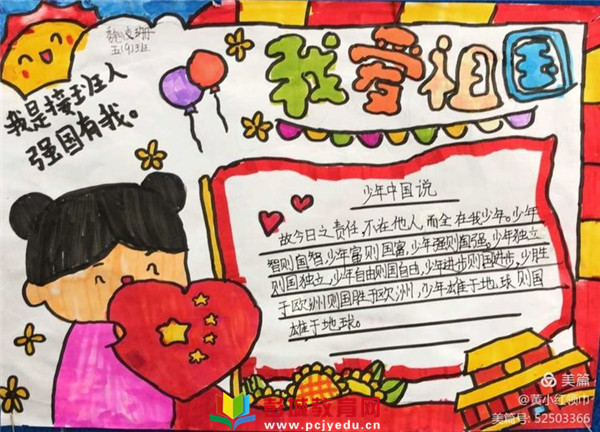 我是接班人
强国有我。
我爱祖国
少年中国说
故今日之责任,不在他人,而全在我少年。少年
智则国智,少年富则国富,少年强则国强。少年独立
则国独立,少年自由则国自由,少年进步则国进步,少胜
于欧洲则国胜于欧洲,少年雄于地球则国
雄于地球。
城教育网
www.pcjyedu.cn
美篇
@黄小红领巾
美篇号: 52503366